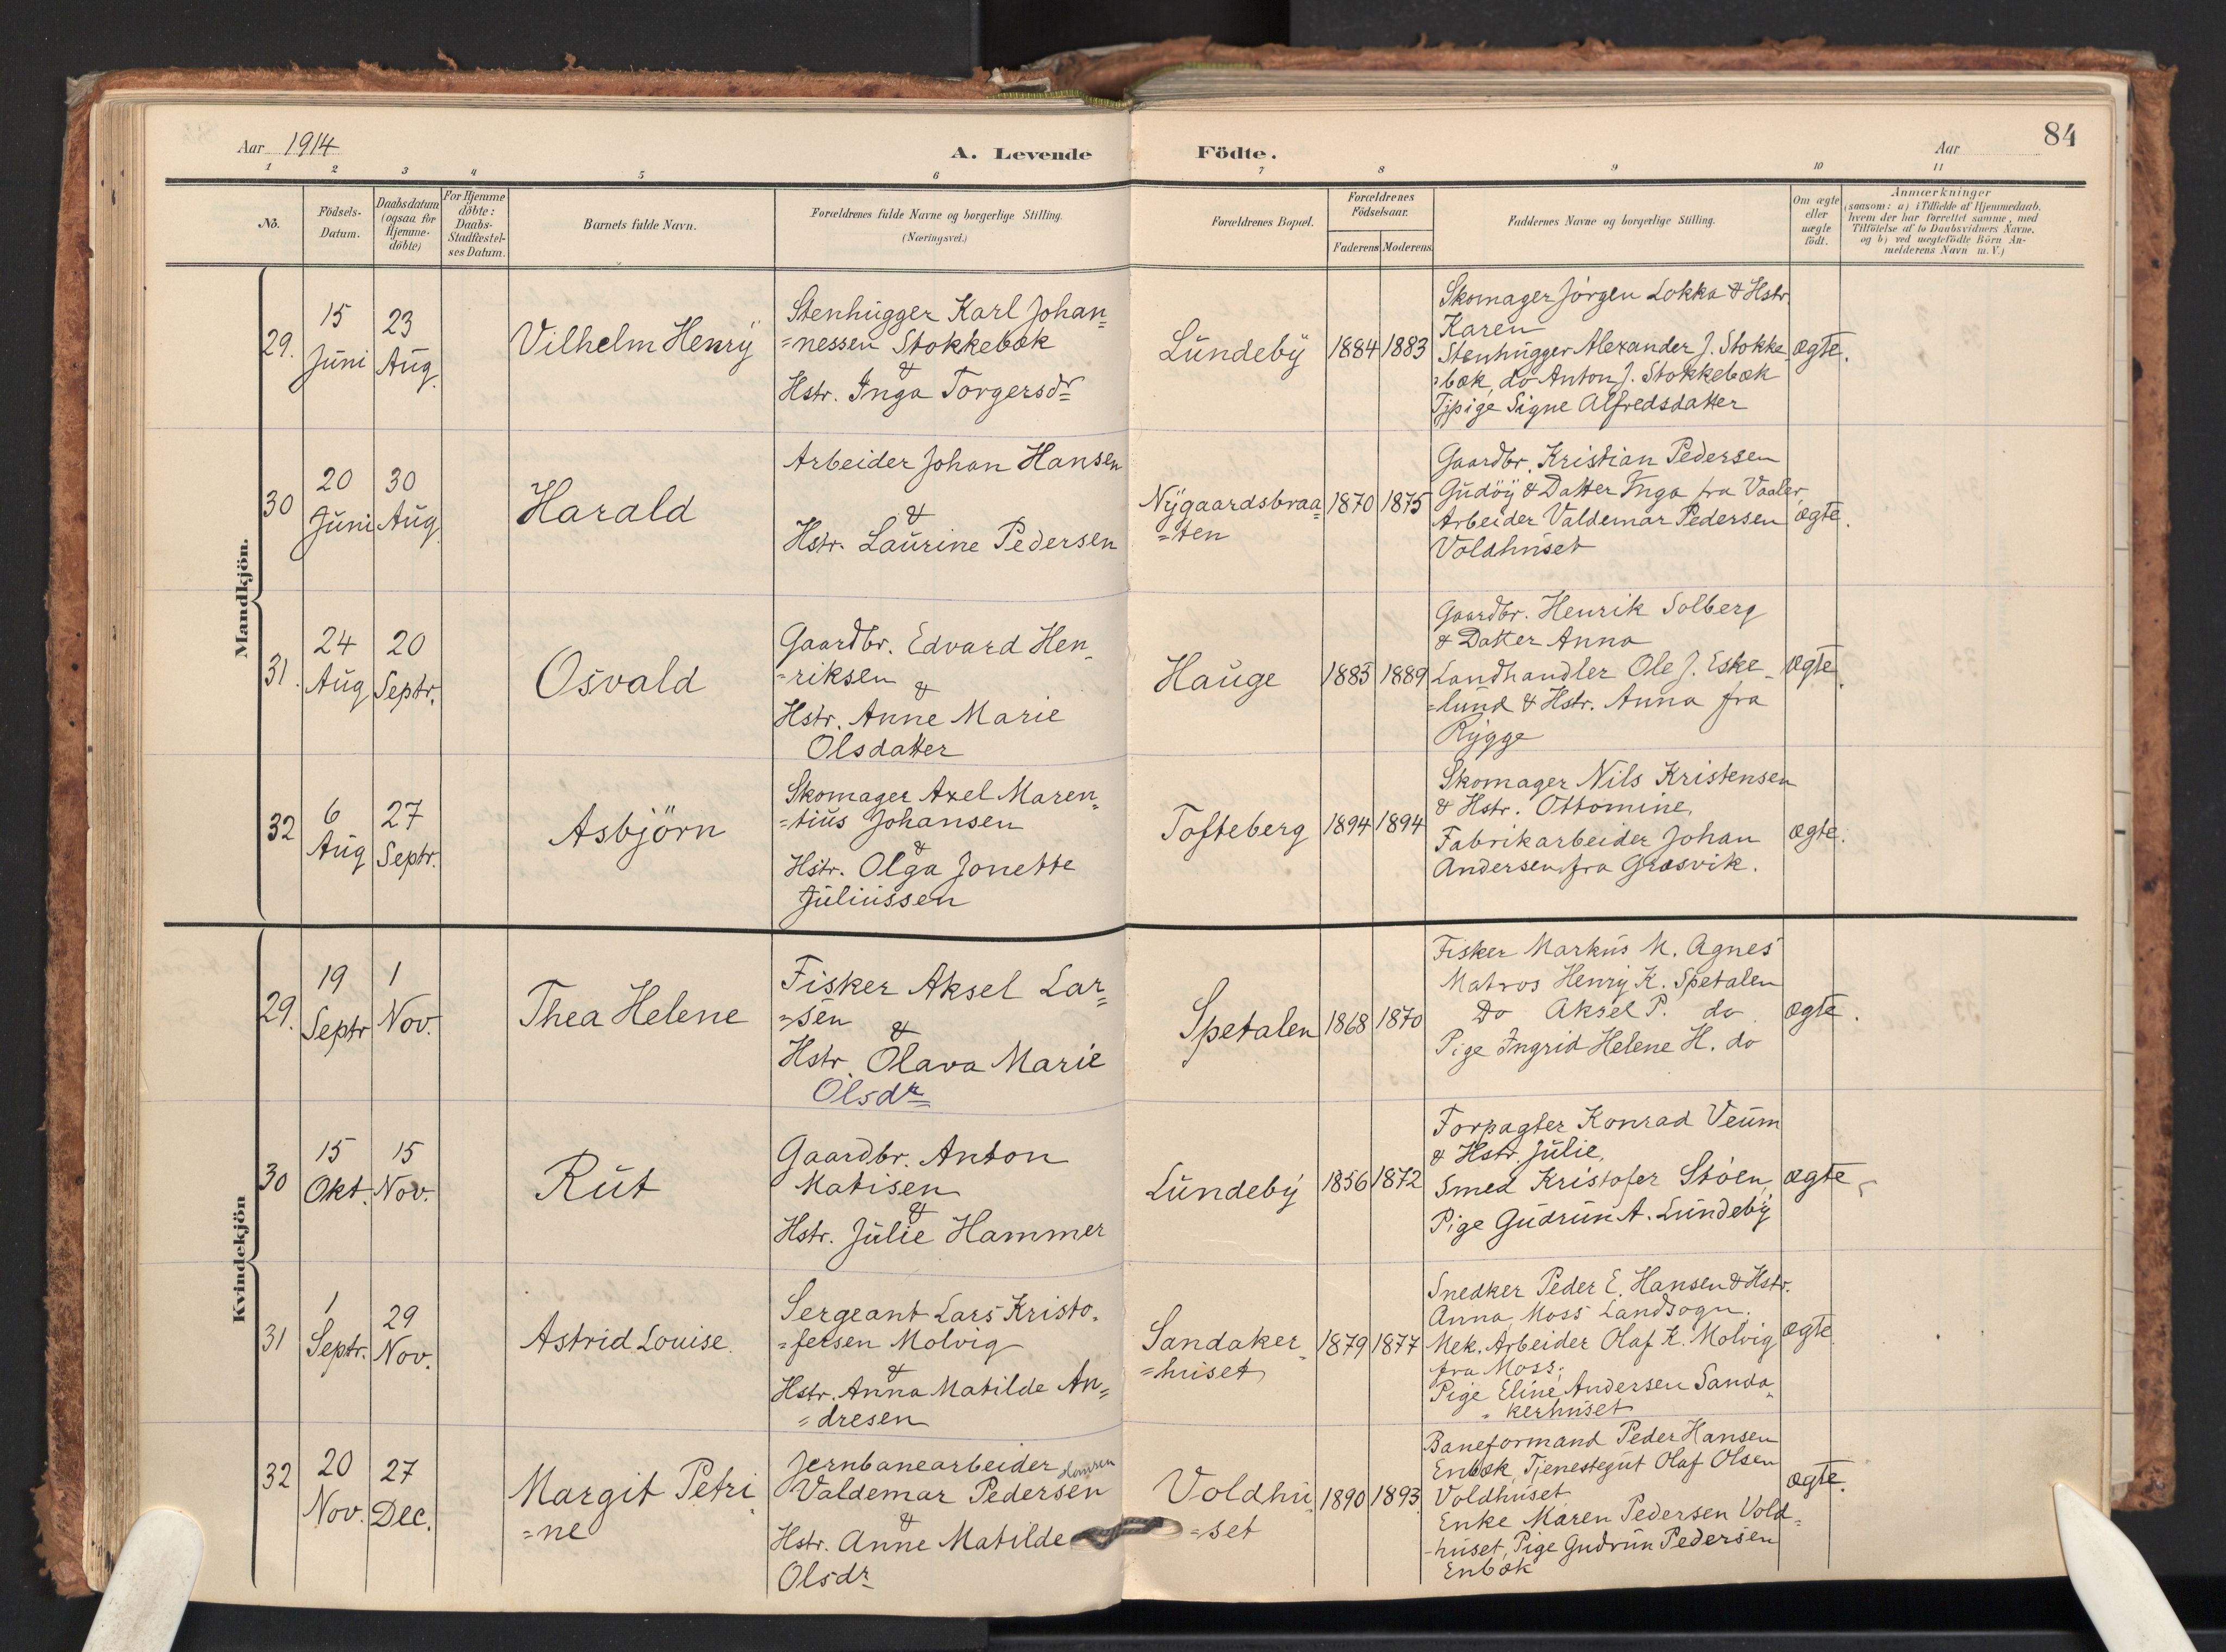 Aar 1914
A. Levende Födte.
Aar
84
1 2 3 4 5 6 7 8 9 10 11
No.
Födsels-
Datum.
Daabsdatum
(ogsaa for
Hjemme-
döbte)
For Hjemme
döbte:
Daabs-
Stadfæstel-
ses Datum.
Barnets fulde Navn.
Forældrenes fulde Navne og borgerlige Stilling.
(Næringsvei.)
Forældrenes Bopæl.
Forældrenes
Födselsaar.
Faderens Moderens
Faddernes Navne og borgerlige Stilling.
Om ægte
eller
uægte
födt.
Anmærkninger
(saasom: a) i Tilfælde af Hjemmedaab.
hvem der har forrettet samme, med
Tilföielse af to Daabsvidners Navne.
og b) ved uægtefödte Börn An-
melderens Navn m. V.)
Mandkjön.
29.
15
Juni
23
Aug.
Vilhelm Henry
Stenhugger Karl Johan=
=nessen Stokkebæk
&
Hstr. Inga Torgersdr
Lundeby
1884
1883
Skomager Jörgen Lokka & Hstr.
Karen
Stenhugger Alexander J. Stokke
=bæk, do Anton J. Stokkebæk
Tjpige Signe Alfredsdatter
ægte.
30
20
Juni
30
Aug.
Harald
Arbeider Johan Hansen
&
Hstr. Laurine Pedersen
Nygaardsbraa=
=ten
1870
1875
Gaardbr. Kristian Pedersen
Gudöy & Datter Inga fra Vaaler
Arbeider Valdemar Pedersen
Voldhuset
ægte.
31.
24
Aug
20
Septr.
Osvald
Gaardbr. Edvard Hen=
=riksen
&
Hstr. Anne Marie
Olsdatter
Hauge
1885
1889
Gaardbr. Henrik Solberg
& Datter Anna
Landhandler Ole J. Eske=
=lund & Hstr. Anna fra
Rygge
ægte.
32
6
Aug
27
Septr.
Asbjörn
Skomager Axel Maren=
=tius Johansen
&
Hstr. Olga Jonette
Juliussen
Tofteberg
1894
1894
Skomager Nils Kristensen
& Hstr. Ottomine,
Fabrikarbeider Johan
Andersen fra Græsvik.
ægte.
Kvindekjön
29.
19
Septr
1
Nov.
Thea Helene
Fisker Aksel Lar=
=sen
&
Hstr. Olava Marie
Olsdr
Spetalen
1868
1870
Fisker Markus M. Agnes
Matros Henry K. Spetalen
Do Aksel P. do
Pige Ingrid Helene H. do
ægte.
30
15
Okt.
15
Nov.
Rut
Gaardbr. Anton
Matisen
&
Hstr. Julie Hammer
Lundeby
1856
1872
Forpagter Konrad Veum
& Hstr. Julie,
Smed Kristofer Stöen,
Pige Gudrun A. Lundeby
ægte
31
1
Septr.
29
Nov.
Astrid Louise.
Sergeant Lars Kristo=
=fersen Molvig
&
Hstr. Anna Matilde An=
=dresen
Sandaker=
=huset
1879
1877
Snedker Peder E. Hansen & Hstr.
Anna, Moss Landsogn.
Mek. Arbeider Olaf K. Molvig
fra Moss;
Pige Eline Andersen Sanda=
=kerhuset
ægte
32
20
Nov.
27
Dec.
Margit Petri
=ne
Jernbanearbeider Hansen
Valdemar Pedersen
&
Hstr. Anne Matilde
Olsdr
Voldhu=
=set
1890
1893
Baneformand Peder Hansen
Enbæk, Tjenestegut Olaf Olsen
Voldhuset
Enke Maren Pedersen Vold=
=huset, Pige Gudrun Pedersen
Enbæk
ægte.